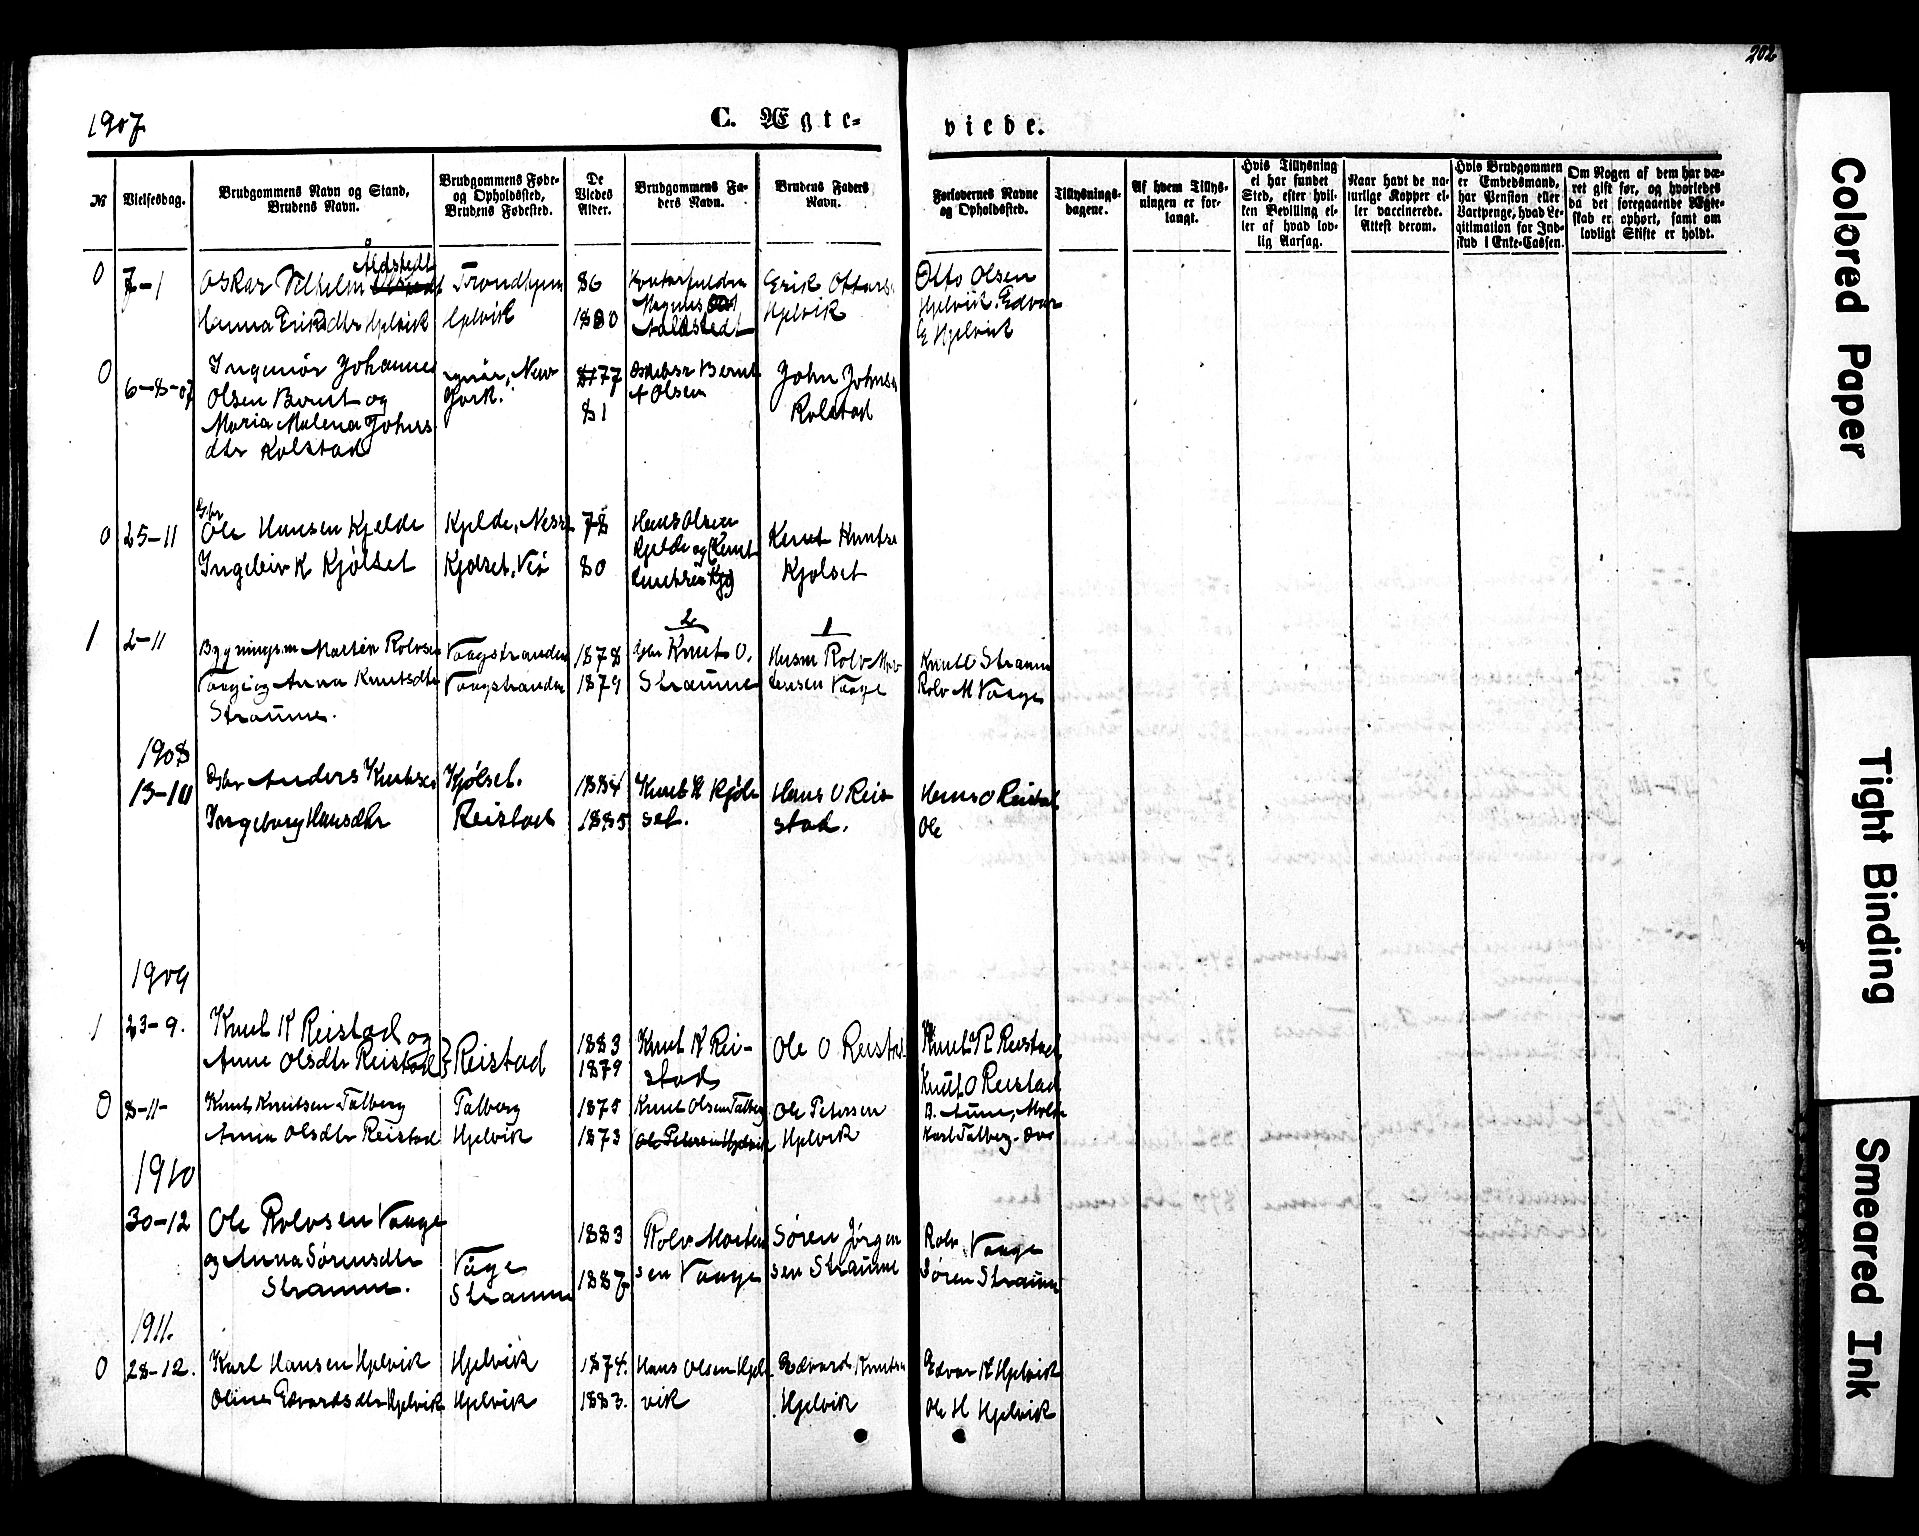 202
1907
C. Ægte-
viede.
№
Vielsesdag.
Brudgommens Navn og Stand,
Brudens Navn.
Brudgommens Føde-
og Opholdssted,
Brudens Fødested.
De
Viedes
Alder.
Brudgommens Fa-
ders Navn.
Brudens Faders
Navn.
Forlovernes Navne
og Opholdssted.
Tillysnings-
dagene.
Af hvem Tillys-
ningen er for-
langt.
Hvis Tillysning
ei har fundet
Sted, efter hvil-
ken Bevilling el-
ler af hvad lov-
lig Aarsag.
Naar havt de na-
turlige Kopper el-
ler vaccinerede.
Attest derom.
Hvis Brudgommen
er Embedsmand,
har Pension eller
Vartpenge, hvad Le-
gitimation for Ind-
skud i Enke-Cassen.
Om Nogen af dem har væ-
ret gift før, og hvorledes
da det foregaaende Ægte-
skab er ophørt, samt om
lovligt Skifte er holdt.
0 7-1 Oskar Vilhelm Aldstedt Trondhjem 86 Erik Ottars Otto Olsen
Hanna Eriksdtr Hjelvik Hjelvik 1880 Magnus Aaldstedt Hjelvik Hjelvik. Edvar
E Hjelvik
0 6-8-07 Ingeniør Johannes New 1877 Bernt John Johns
Olsen Bernt og York. 81 A Olsen Kolstad
Maria Malena Johns
dtr Kolstad
0 25-11 Gbr Ole Hansen Kjelde Kjelde, Nesse 78 Hans Olsen Knut Knutse
Kjelde og Knut
Ingebir K Kjølset Kjølset, Veø 80 Knutsen Kjølset
1 2-11 Bygningsm Martin Rolvsen Vaagstranden 1878 2 Gbr Knut O. 1 Husm Rolv Mor Knut O Straume
Vaage og Anna Knutsdtr Vaagstranden 1879 Straume tensen Vaage Rolv M Vaage
Straume.
1908
13-10 Gbr Anders Knutsen Kjølset. 1884 Knut K Kjøl Hans O Rei Hans O Reistad
Ingeborg Hansdtr Reistad 1885 set. stad. Ole
1909
1 23-9. Knut K Reistad og Reistad 1883 Knut K Rei- Ole O Reistad Knut R Reistad
Anne Olsdtr Reistad 1879 stad Knut O Reistad
0 8-11- Knut Knutsen Talberg Talberg 1875 Knut Olsen Talberg Ole Petersen Aune, Molde
Anna Olsdtr Reistad Hjelvik 1873 Ole Petersen Hjelvik Hjelvik Karl Talberg
1910
30-12 Ole Rolvsen Vaage 1883 Rolv Morten Søren Jørgen Rolv Vaage
og Anna Sørensdtr Våge 1887 sen Vaage sen Straume Søren Straume
Straume. Straume
1911.
0 28-12. Karl Hansen Hjelvik Hjelvik 1874. Hans Olsen Hjel Edvard Knutsen Edvar K Hjelvik
Oline Edvardsdtr Hjelvik Hjelvik 1883. vik Hjelvik Ole H Hjelvik
Colored Paper
Tight Binding
Smeared Ink